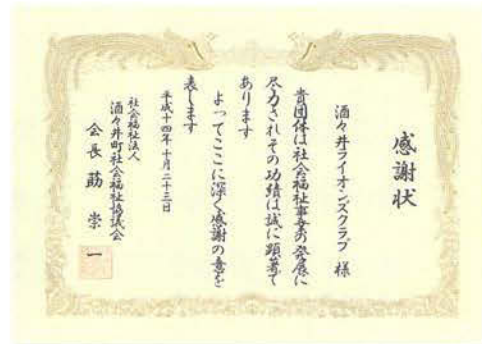 感謝状
酒々井ライオンズクラブ 様
貴団体は社会福祉事業の発展に
尽力されその功績は誠に顕著で
あります
よってここに深く感謝の意を
表します
平成十四年十月二十三日
社会福祉法人
酒々井町社会福祉協議会
会長 莇 崇一